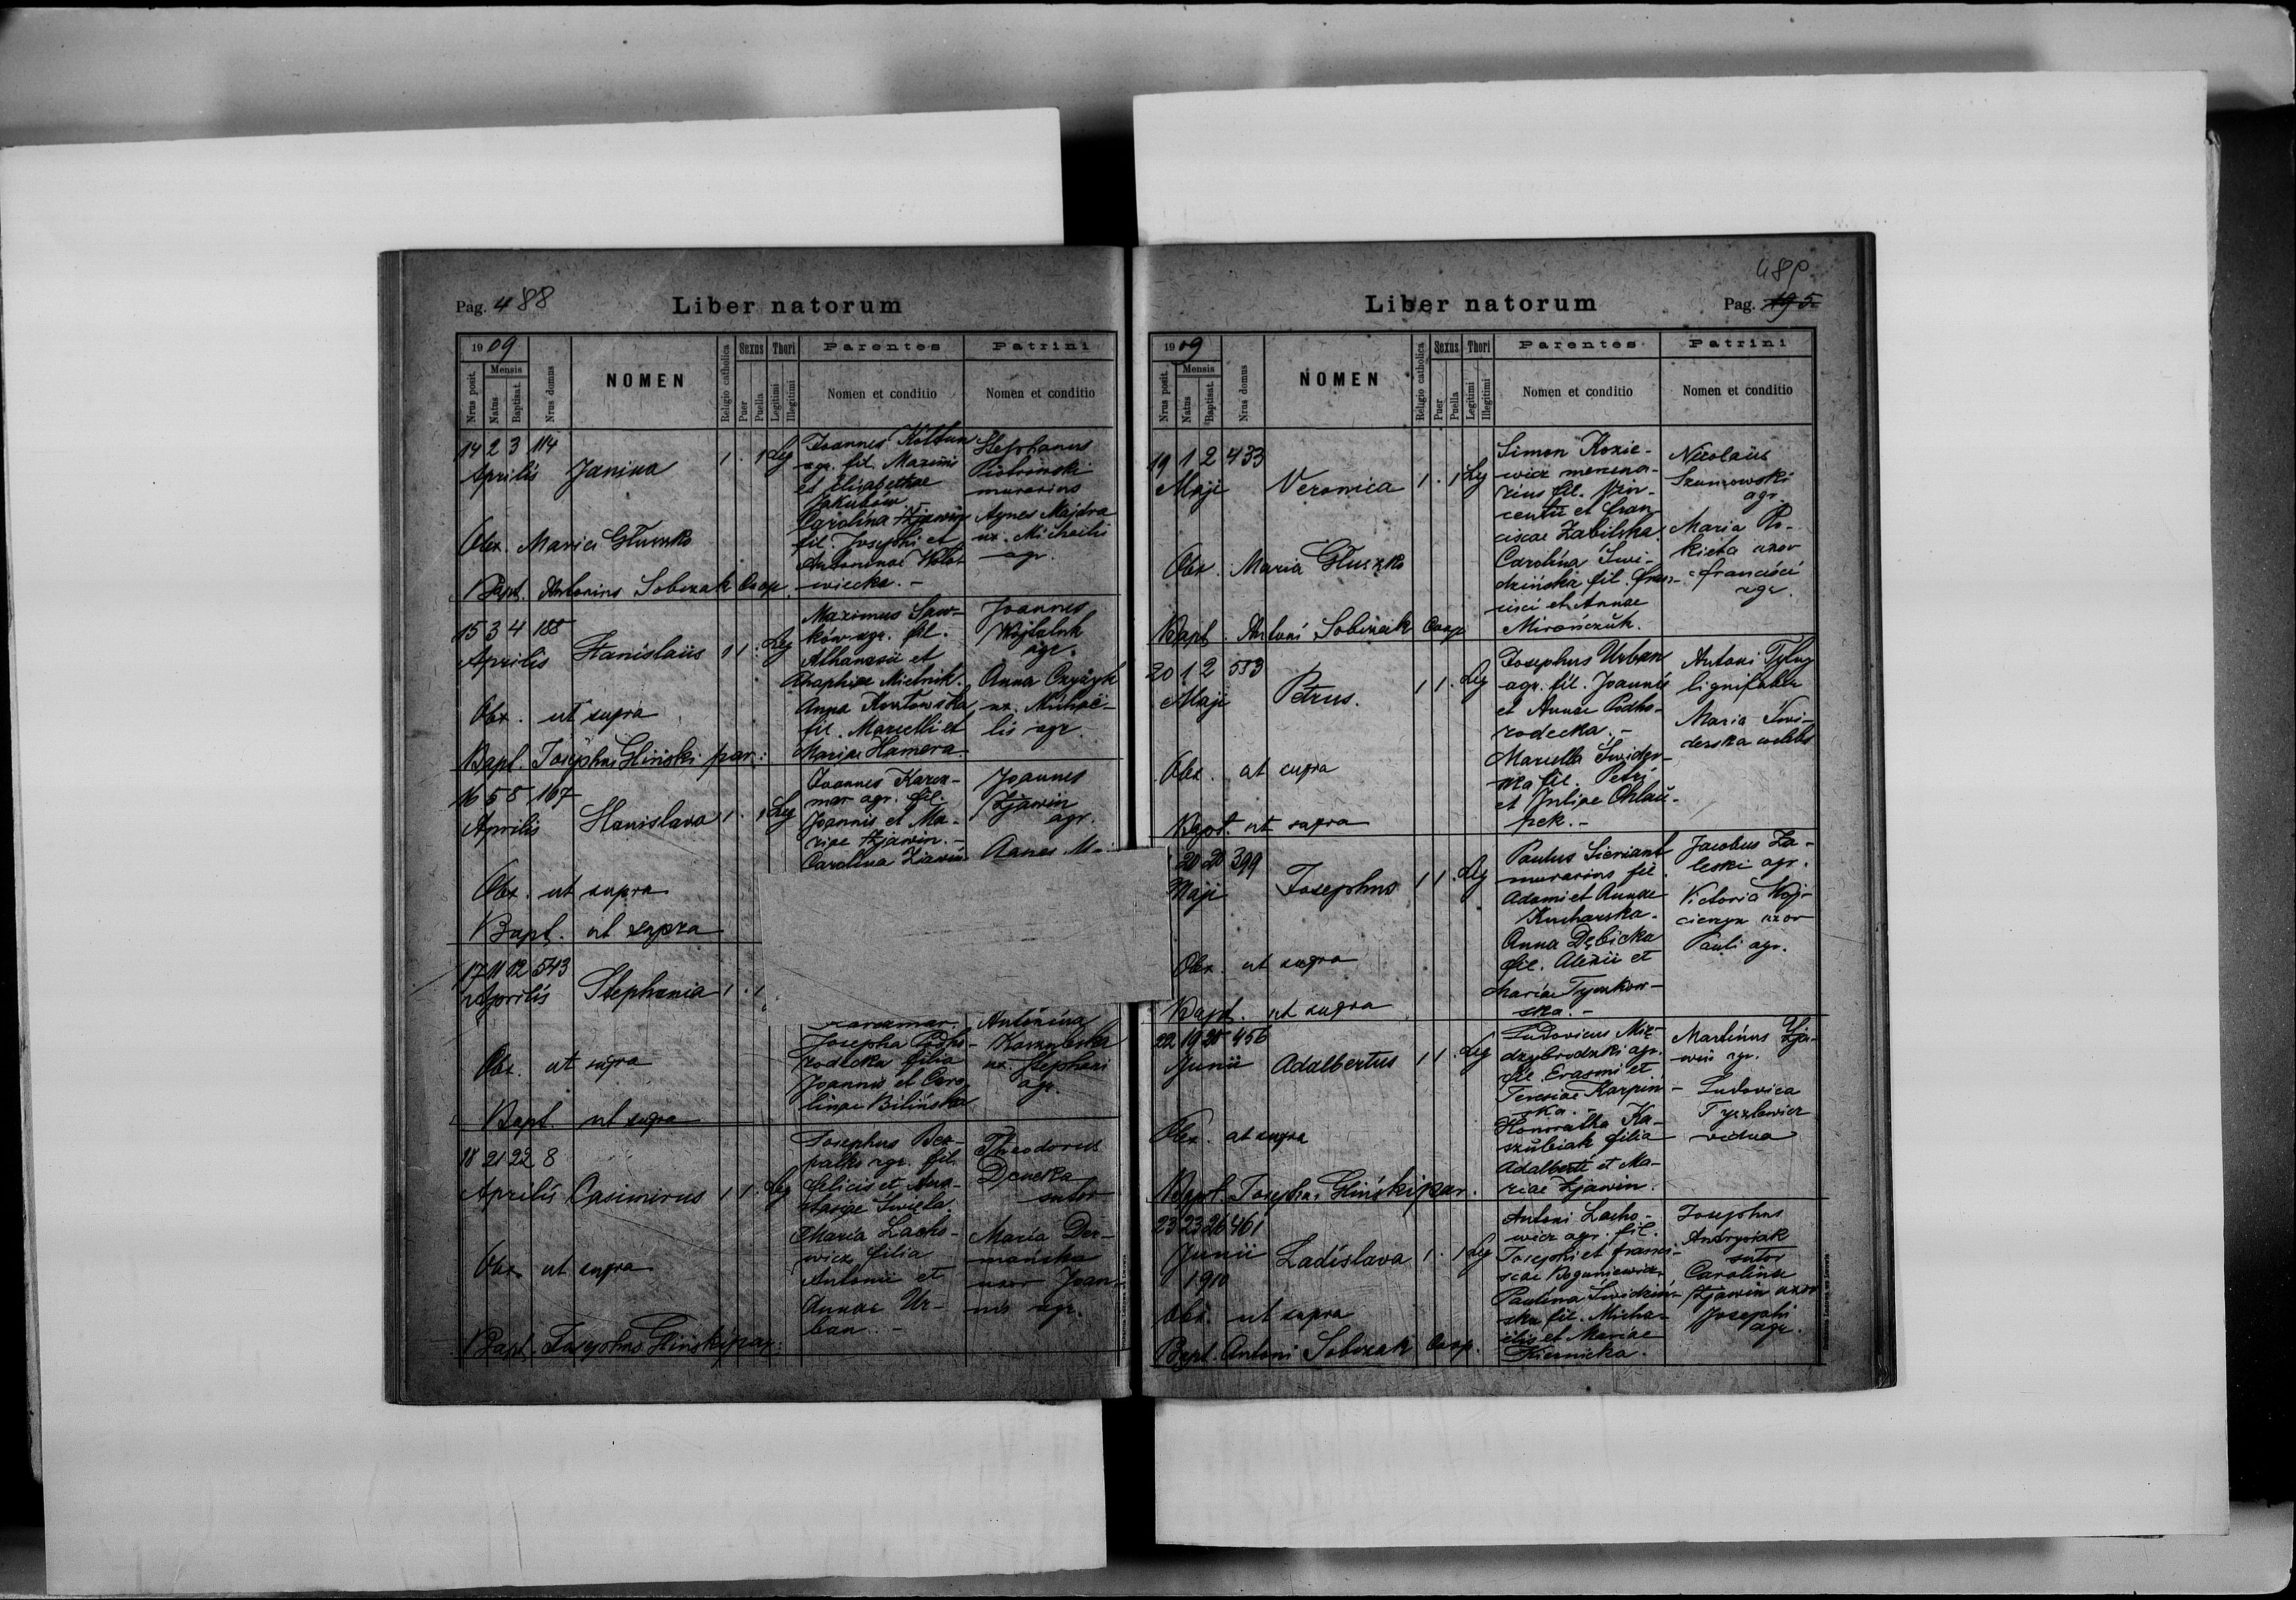 Pag. 488
Liber natorum
1909
Nrus posit.
Mensis
Natus
Baptisat.
Nrus domus
NOMEN
Religio catholica
Sexus
Puer
Puella
Thori
Legitimi
Illegitimi
Parentes
Nomen et conditio
Patrini
Nomen et conditio
14 2 3 114
Aprilis Janina 1 . 1 Leg
Joannes Kółtun
agr. fil. Maximi
et Elisabethae
Jakubów
Carolina Zjawin
fil. Josephi et
Antoninae
wiecka. -
Stephanus
Piotrowski
murarius
Agnes Majdra
ux. Michaelis
agr.
Obx. Maria Głuszko
Bapt. Antonius Sobczak Coop.
15 3 4 188
Aprilis Stanislaus 1 1 . Leg
Maximus Saw-
ków agr. fil.
Athanasii et
Mielnik.
Anna Kozłowska
fil. Marcelli et
Mariae Hamera
Joannes
agr.
Anna
ux. Michaë-
lis agr.
Obx. ut supra
Bapt. Josephus Gliński par.
16 5 8 167
Aprilis Stanislava 1 . 1 Leg
Joannes Karcz-
mar agr. fil.
Joannis et Ma-
riae Zjawin. -
Carolina Zjawin
Joannes
Zjawin
agr.
Agnes
Obx. ut supra
Bapt. ut supra
17 11 12 543
Aprilis Stephania 1 . 1
Karczmar.
Josepha Podho-
rodecka filia
Joannis et Caro-
linae Bilińska
Antonina
ux. Stephani
agr.
Obx. ut supra
Bapt. ut supra
18 21 22 8
Aprilis Casimirus 1 1 . Leg
Josephus Bez-
palko agr. fil.
Felicis et Ana-
stasiae Święta.
Maria Lacho-
wicz filia
Antonii et
Annae Ur-
ban. -
Theodorus
sutor
Maria Der-
mańska
uxor Joan-
nis agr.
Obx. ut supra
Bapt. Josephus Gliński par.
489
Liber natorum
Pag. 195
1909
Nrus posit.
Mensis
Natus
Baptisat.
Nrus domus
NOMEN
Religio catholica
Sexus
Puer
Puella
Thori
Legitimi
Illegitimi
Parentes
Nomen et conditio
Patrini
Nomen et conditio
19 1 2 433
Maji Veronica 1 . 1 Leg
Simon Kozie-
wicz mercena-
rius fil. Vin-
centii et Fran-
ciscae Zabilska.
Carolina Świ-
dzińska fil. Fran-
cisci et Annae
Mirończuk.
Nicolaus
Szumowski
agr.
Maria Ro-
kieta uxor
Francisci
agr.
Obx. Maria Głuszko
Bapt. Antoni Sobczak Coop
20 1 2 553
Maji Petrus. 1 1 . Leg
Josephus Urban
agr. fil. Joannis
et Annae Podho-
rodecka. -
Marcella Świder-
ska fil. Petri
et Juliae Chlau-
pek. -
Antoni Tylny
lignifaber
Maria Świ-
derska coelebs
Obx. ut supra
Bapt. ut supra
20 20 399
Maji Josephus 1 1 . Leg
Paulus Sieriant
murarius fil.
Adami et Annae
Kucharska.
Anna Dębicka
fil. Alexii et
Mariae Tyczkow-
ska. -
Jacobus Za-
leski agr.
Victoria Woj-
cieszyn uxor
Pauli agr.
Obx. ut supra
Bapt. ut supra
22 19 20 456
Junii Adalbertus 1 1 . Leg
Ludovicus Mie-
dzybrodzki agr.
fil. Erasmi et
Teresiae Karpiń-
ska. -
Honoratha Ka-
szubiak filia
Adalberti et Ma-
riae Zjawin.
Martinus Zja-
win agr.
Ludovica
Tyszkowicz
vidua
Obx. ut supra
Bapt. Josephus Gliński par.
23 23 26 461
Junii Ladislava 1 . 1 Leg
1910
Antoni Lacho-
wicz agr. fil.
Josephi et Franci-
scae Boguniewicz.
Paulina Świdziń-
ska fil. Micha-
elis et Mariae
Kiernicka.
Josephus
Andrysiak
sutor
Carolina
Zjawin uxor
Josephi
agr.
Obx. ut supra
Bapt. Antoni Sobczak Coop.